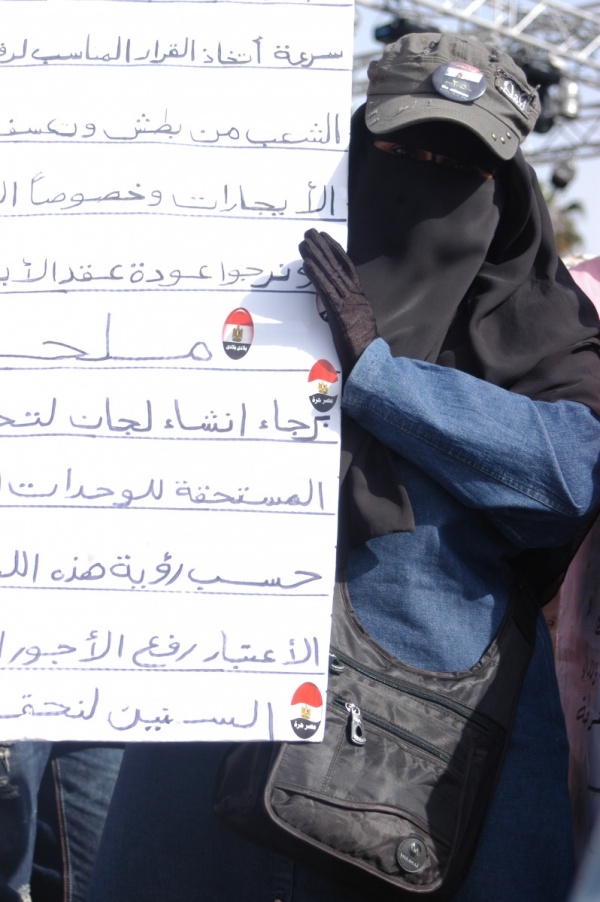 سرعة أتخاذ القرار المناسب لرفـ
الشعب من بطش وتعسف
الأيجارات وخصوصاً الـ
ونرجوا عودة عقد الأيـ
ملحـ
برجاء انشاء لجان لتحـ
المستحقة للوحدات ا
حسب رؤية هذه اللـ
الأعتبار رفع الأجور ا
السنين لنحقـ
بلادى بلادى
مصر حرة
مصر حرة